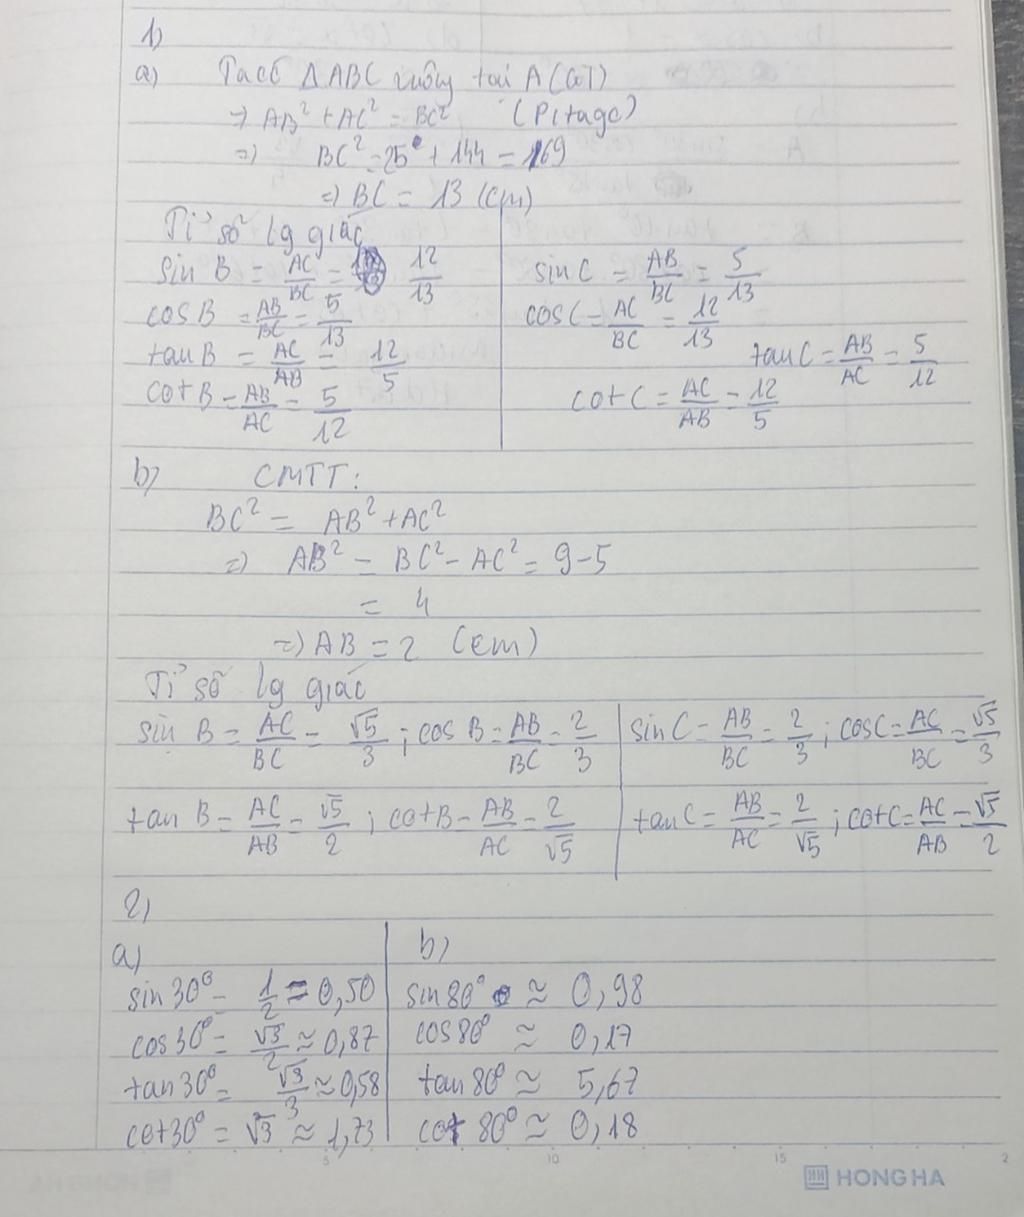 1)
a) Tacó ΔABC vuông tại A (GT)
=> AB² + AC² = BC² (Pitago)
=> BC² = 25 + 144 = 169
=> BC = 13 (cm)
Tỉ số lg giác
sin B = AC/BC = 12/13
cos B = AB/BC = 5/13
tan B = AC/AB = 12/5
cot B = AB/AC = 5/12
sin C = AB/BC = 5/13
cos C = AC/BC = 12/13
tan C = AB/AC = 5/12
cot C = AC/AB = 12/5
b) CMTT:
BC² = AB² + AC²
=> AB² = BC² - AC² = 9 - 5
= 4
=> AB = 2 (cm)
Tỉ số lg giác
sin B = AC/BC = √5/3 ; cos B = AB/BC = 2/3
tan B = AC/AB = √5/2 ; cot B = AB/AC = 2/√5
sin C = AB/BC = 2/3 ; cos C = AC/BC = √5/3
tan C = AB/AC = 2/√5 ; cot C = AC/AB = √5/2
2)
a)
sin 30° = 1/2 = 0,50
cos 30° = √3/2 ≈ 0,87
tan 30° = √3/3 ≈ 0,58
cot 30° = √3 ≈ 1,73
b)
sin 80° ≈ 0,98
cos 80° ≈ 0,17
tan 80° ≈ 5,67
cot 80° ≈ 0,18
5 10 15 2
HONG HA